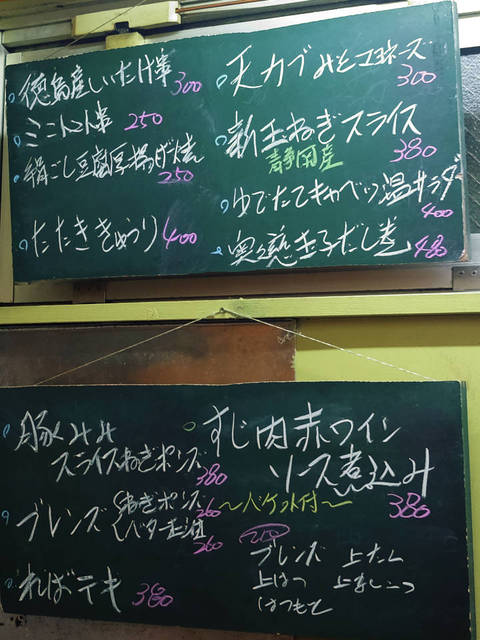 徳島産しいたけ串 300
ミニトマト串 250
絹ごし豆腐厚揚げ焼 250
たたききゅうり 400
天カブみそマヨネーズ 300
新玉ねぎスライス 380
静岡産
ゆでたてキャベツ温サラダ 400
奥久慈玉子だし巻 480
豚みみ
スライスねぎポンズ 380
ブレンズ ねぎポンズ 260
バター醤油 260
ればテキ 380
すじ肉赤ワイン
ソース煮込み 380
〜バケット付〜
210
ブレンズ 上たん
上はつ
はつもと